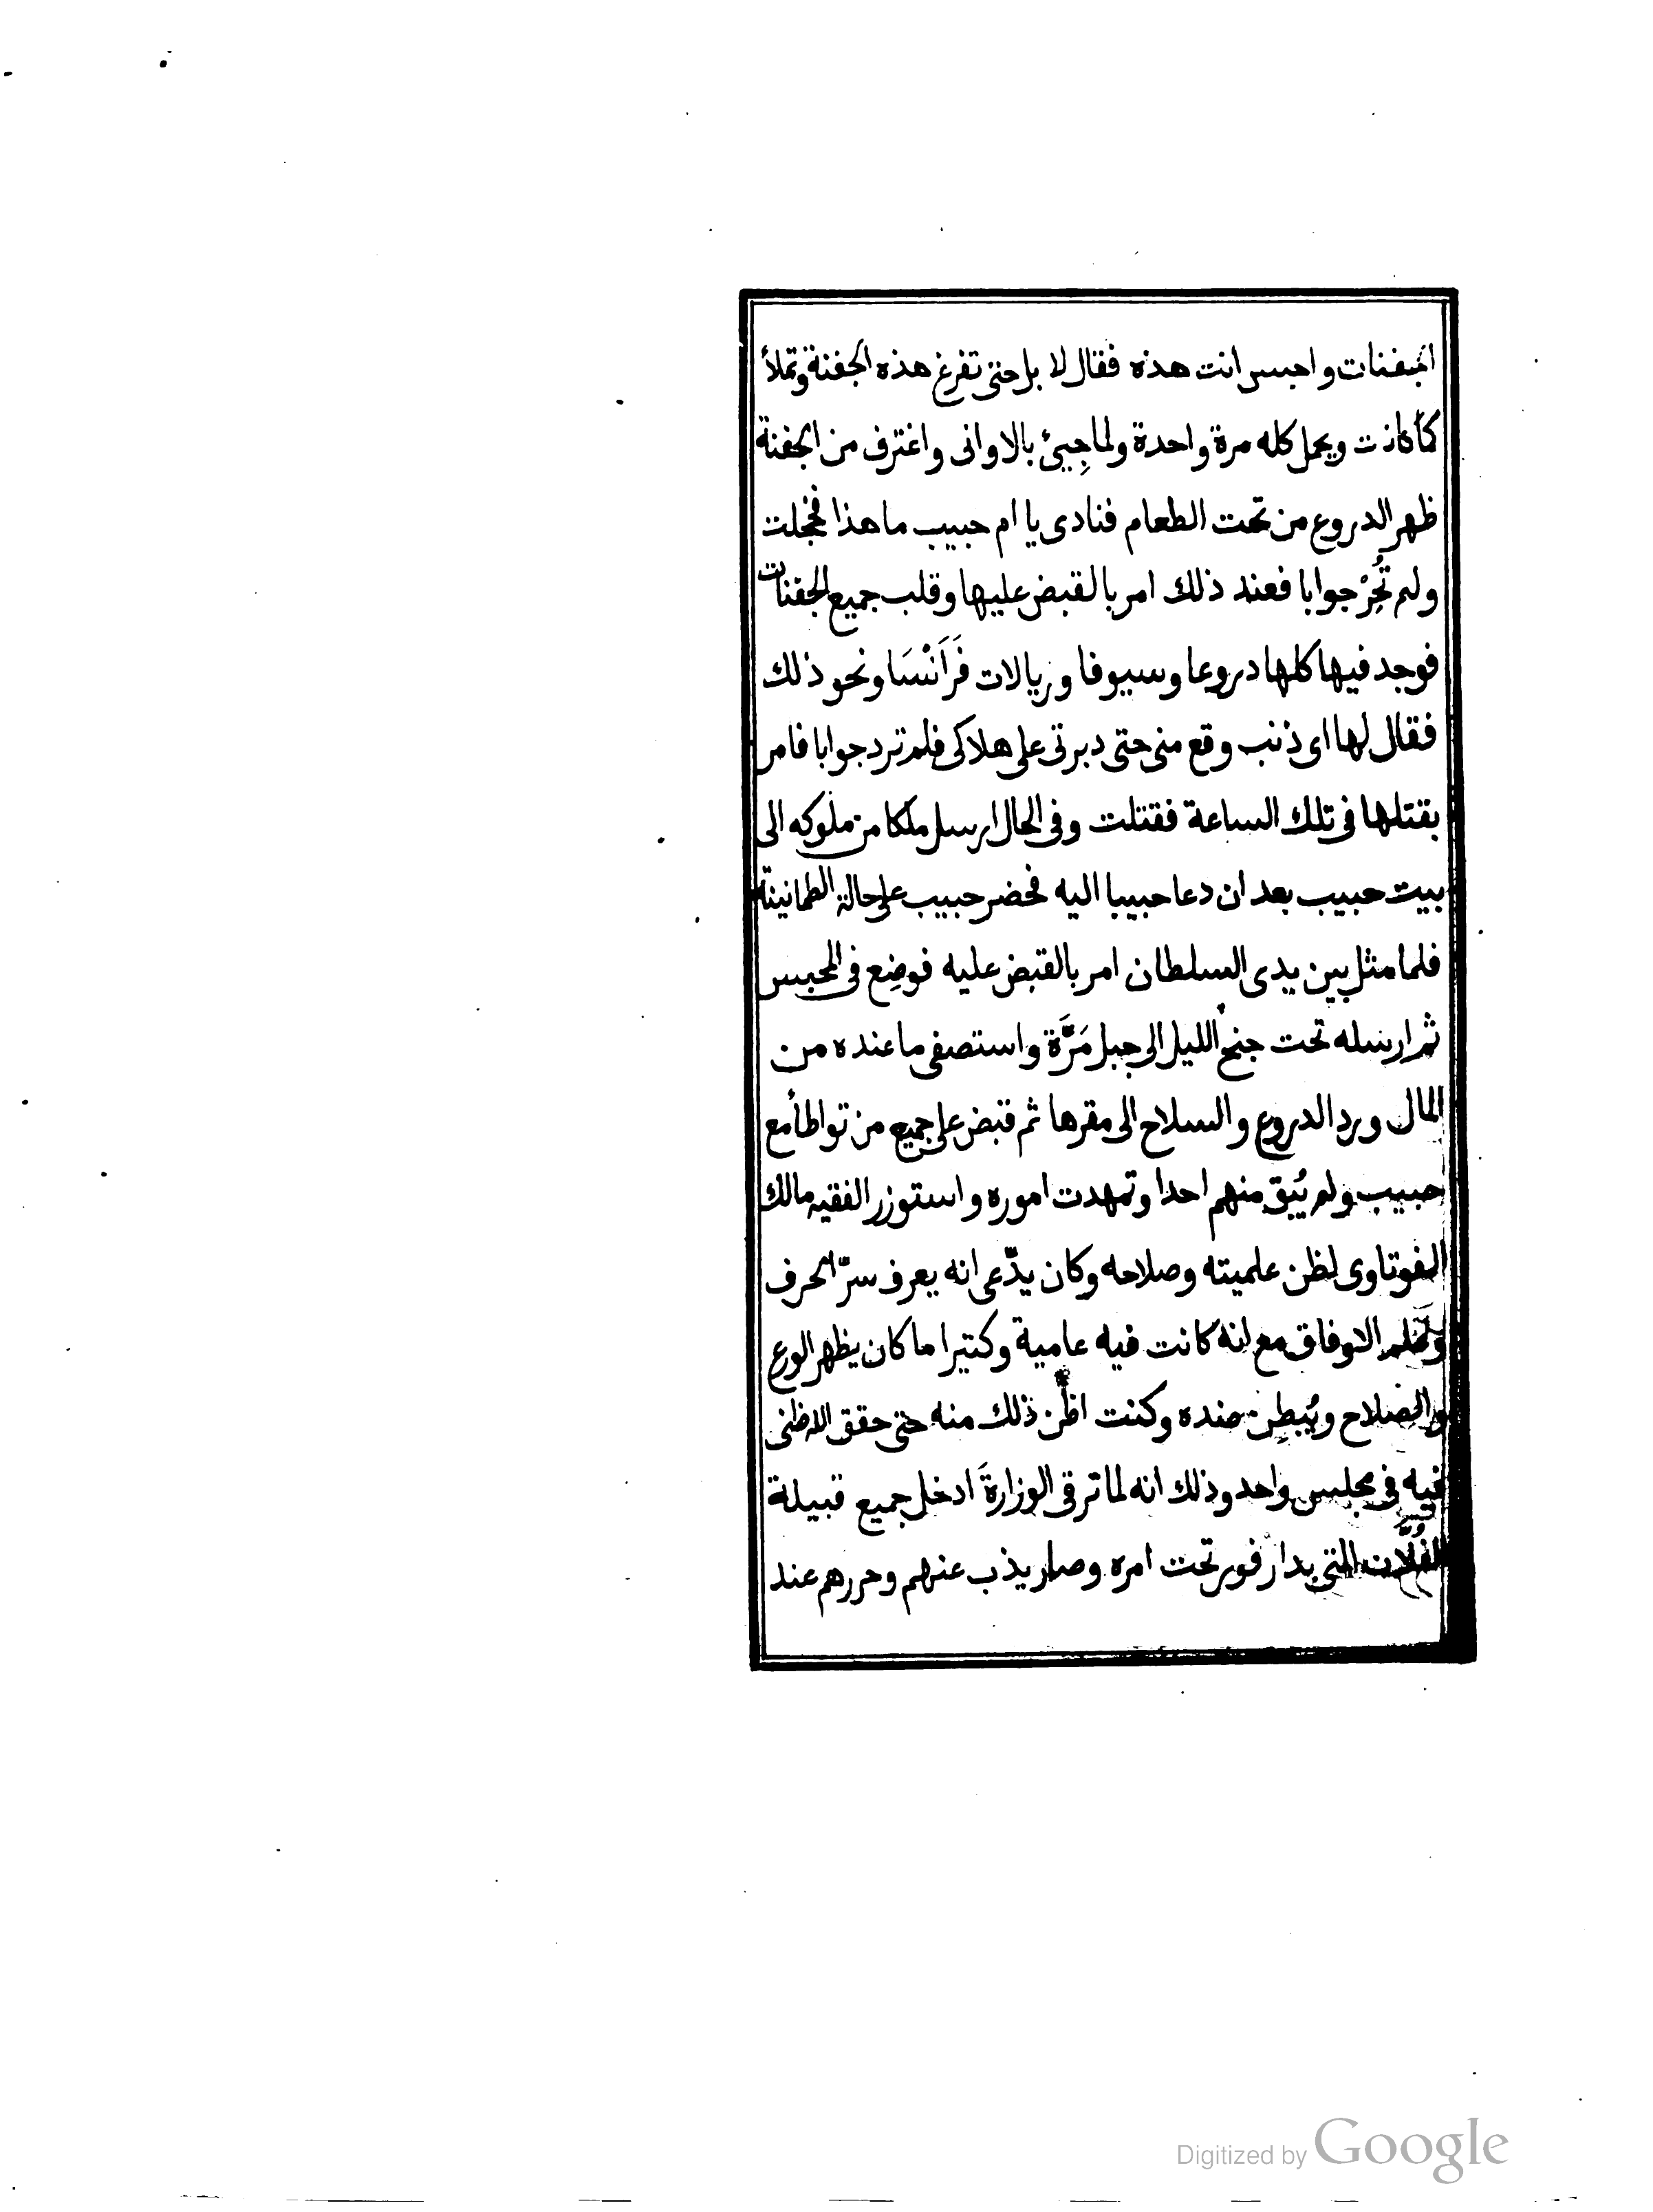 الجفنات واحبس انت هذه فقال لا بل حتى تفرغ هذه الجفنة وتملأ
كما كانت ويحمل كله مرة واحدة ولما جِيئ بالاوانى واغترف من الجفنة
ظهر الدروع من تحت الطعام فنادى يا ام حبيب ما هذا فخجلت
ولم تُحِرْ جوابا فعند ذلك امر بالقبض عليها وقلب جميع الجفنات
فوجد فيها كلها دروعا وسيوفا وريالات فَرَانْسَا ونحو ذلك
فقال لها اى ذنب وقع منى حتى دبرتى على هلاكى فلم ترد جوابا فامر
بقتلها فى تلك الساعة فقتلت وفى الحال ارسل ملكا من ملوكه الى
بيت حبيب بعد ان دعا حبيبا اليه فحضر حبيب على حالة الطمانينة
فلما مثل بين يدى السلطان امر بالقبض عليه فوضِع فى المحبس
ثم ارسله تحت جنح الليل الى جبل مَرَّة واستصفى ما عنده من
المال ورد الدروع والسلاح الى مقرها ثم قبض على جميع من تواطأ مع
حبيب ولم يُبق منهم احدا وتمهدت اموره واستوزر الفقيه مالك
الفوتاوى لظن علميته وصلاحه وكان يدّعى انه يعرف سرّ الحرف
الاوفاق مع انه كانت فيه عامية وكثيرا ما كان يظهر الورع
والصلاح ويُبطِن ضده وكنت اظن ذلك منه حتى حقق الله ظنى
فيه فى مجلس واحد وذلك انه لما ترقى الوزارةَ ادخل جميع قبيلة
الفُلَّان التى بدارفور تحت امره وصار يذب عنهم وحررهم عند
Digitized by Google